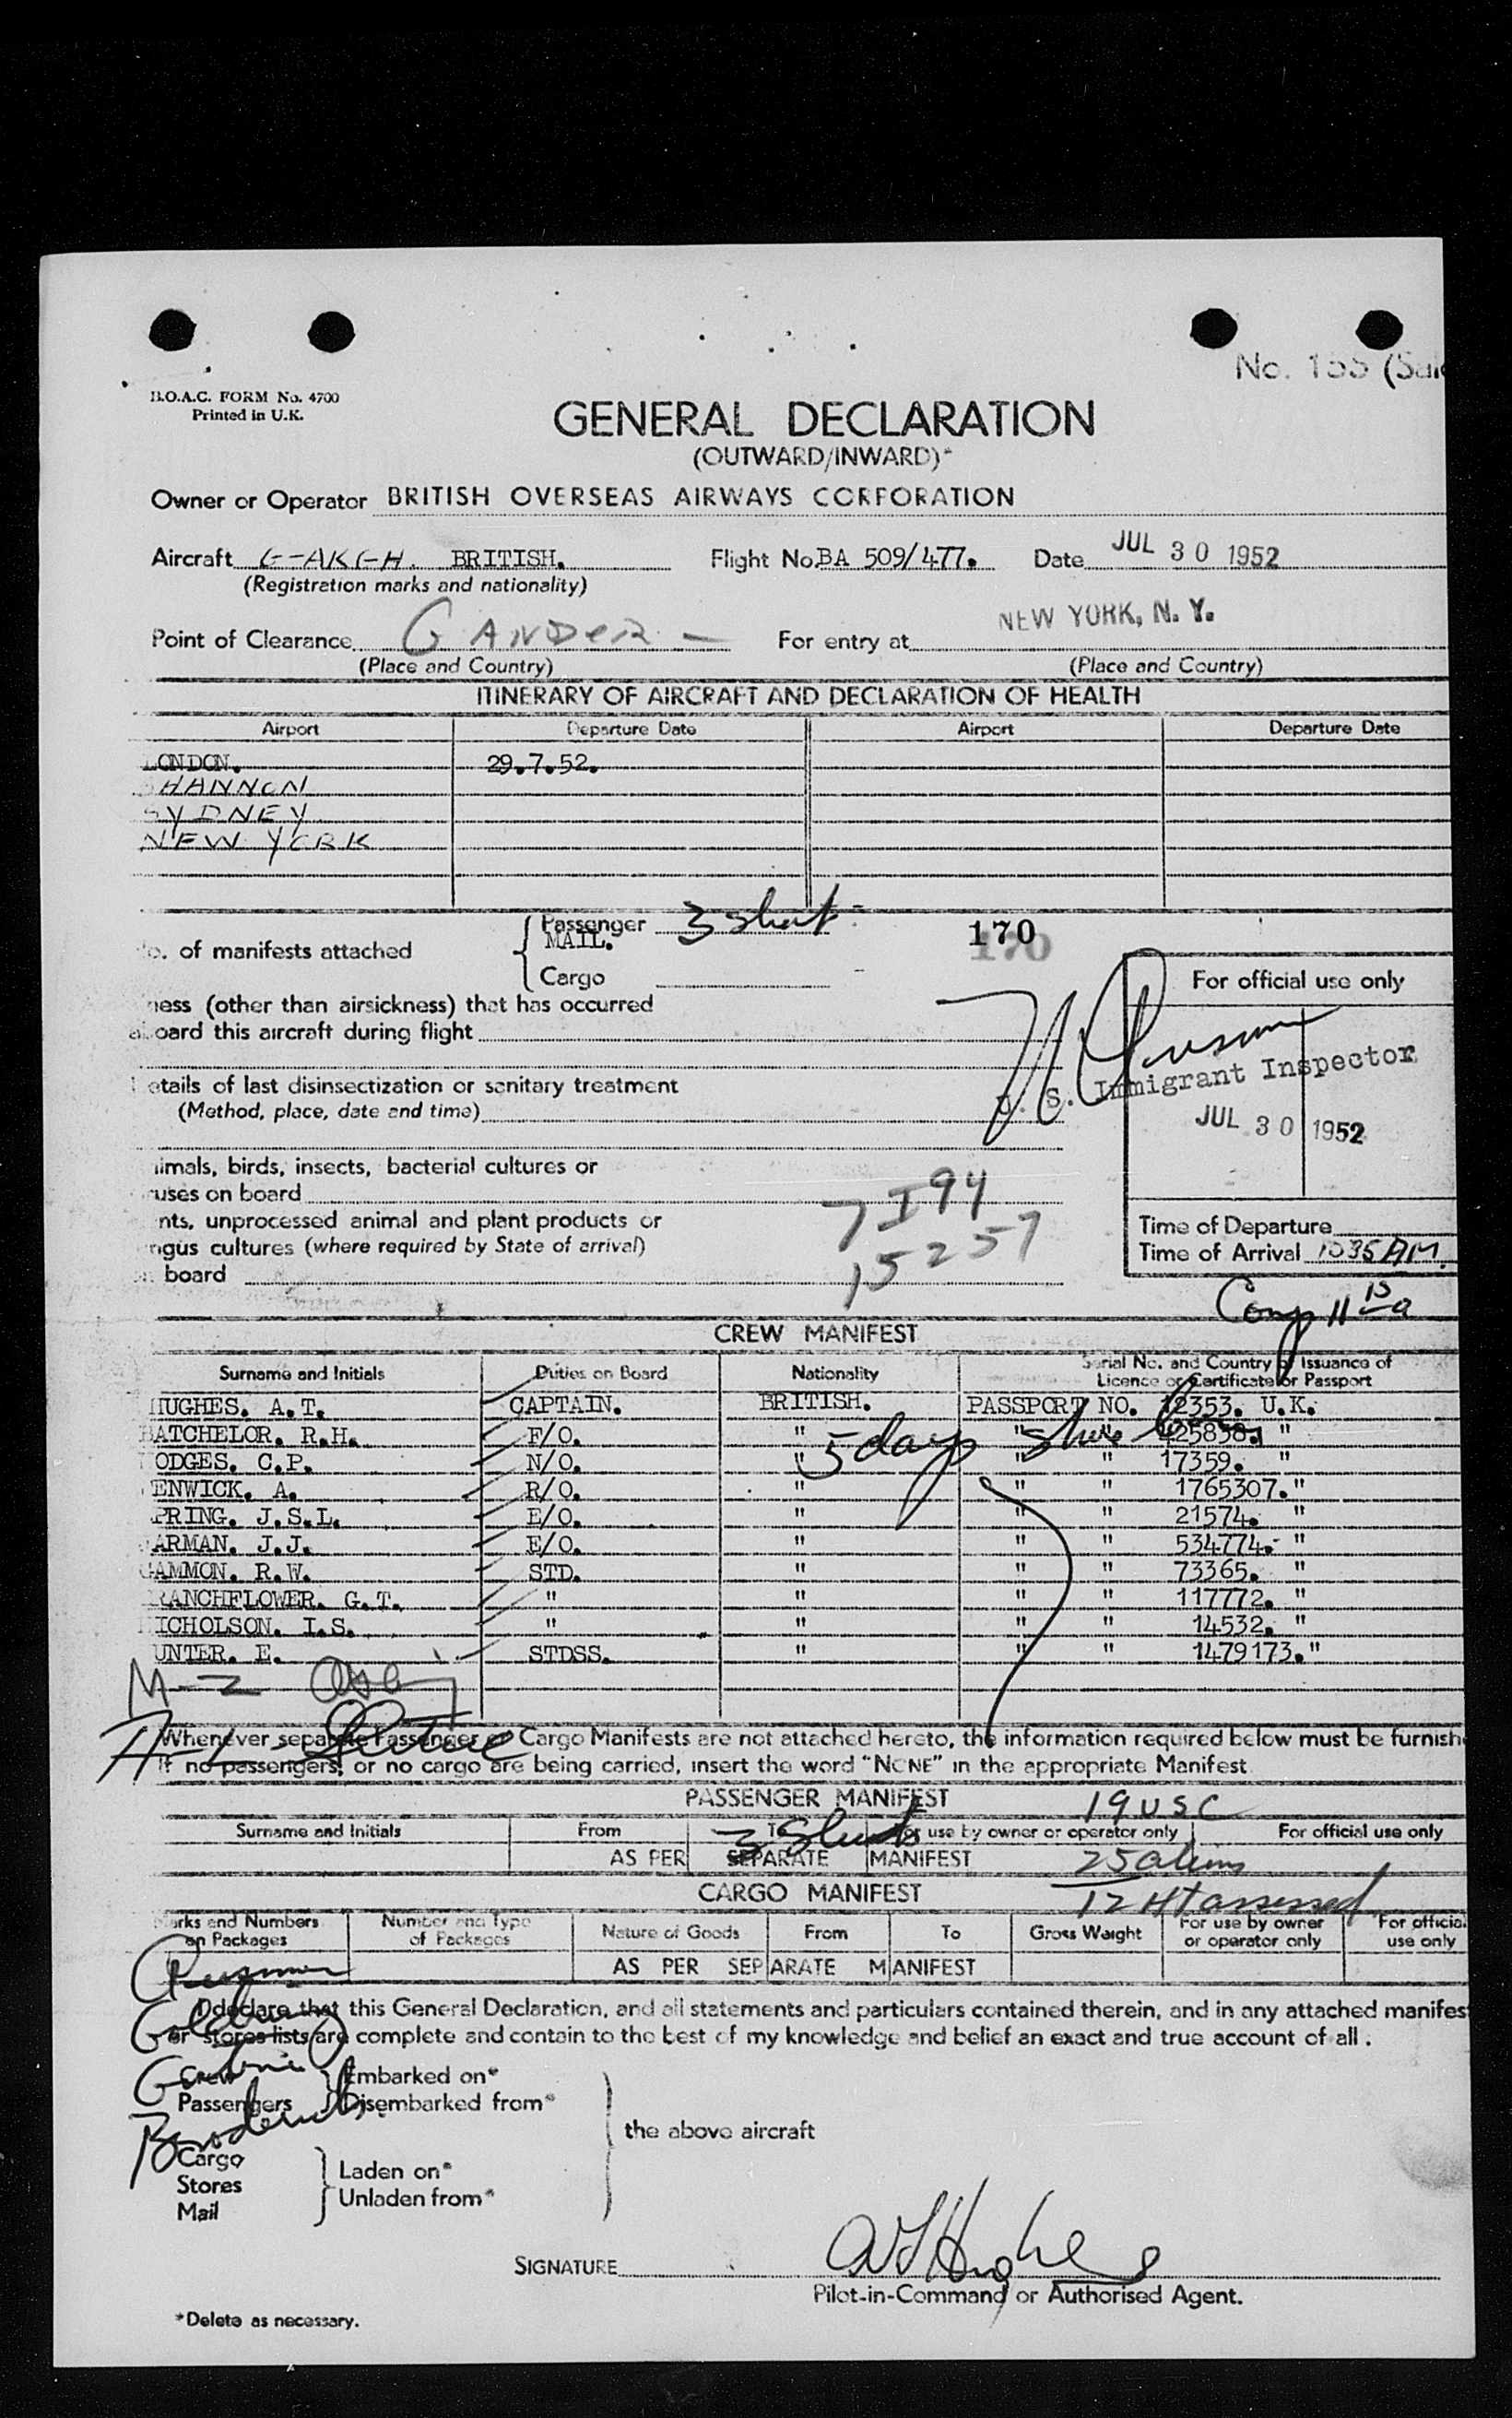 No. 155
B.O.A.C. FORM No. 4700
Printed in U.K.
GENERAL DECLARATION
(OUTWARD/INWARD)*
Owner or Operator BRITISH OVERSEAS AIRWAYS CORPORATION
Aircraft G-AKGH. BRITISH. Flight No. BA 509/477. Date JUL 30 1952
(Registration marks and nationality)
Point of Clearance GANDER - For entry at NEW YORK, N. Y.
(Place and Country) (Place and Country)
ITINERARY OF AIRCRAFT AND DECLARATION OF HEALTH
Airport Departure Date Airport Departure Date
LONDON. 29.7.52.
SHANNON
SYDNEY
NEW YORK
Passenger 3 sheets
MAIL.
o. of manifests attached
170
Cargo
For official use only
ness (other than airsickness) that has occurred
aboard this aircraft during flight
etails of last disinsectization or sanitary treatment
U. S. Immigrant Inspector
(Method, place, date and time)
JUL 30 1952
imals, birds, insects, bacterial cultures or
ruses on board
7 I94
nts, unprocessed animal and plant products or
Time of Departure
ngus cultures (where required by State of arrival)
15257
Time of Arrival 1035 AM.
on board
Comp 11 15 a
CREW MANIFEST
Surname and Initials Duties on Board Nationality Serial No. and Country of Issuance of
Licence or Certificate or Passport
HUGHES. A.T. CAPTAIN. BRITISH. PASSPORT NO. 12353. U.K.
BATCHELOR. R.H. F/O. " " " 125838. "
ODGES. C.P. N/O. " " " 17359. "
5 days shore
ENWICK. A. R/O. " " " 1765307. "
PRING. J.S.L. E/O. " " " 21574. "
ARMAN. J.J. E/O. " " " 534774. "
GAMMON. R.W. STD. " " " 73365. "
RANCHFLOWER. G.T. " " " " 117772. "
NICHOLSON. I.S. " " " " 14532. "
UNTER. E. STDSS. " " " 1479173. "
M-2
Whenever separate Passenger or Cargo Manifests are not attached hereto, the information required below must be furnish
If no passengers, or no cargo are being carried, insert the word "NONE" in the appropriate Manifest
PASSENGER MANIFEST 19 USC
Surname and Initials From To For use by owner or operator only For official use only
3 Sheets
AS PER SEPARATE MANIFEST 25 aliens
CARGO MANIFEST 12 HT assessed
Marks and Numbers on Packages Number and Type of Packages Nature of Goods From To Gross Weight For use by owner or operator only For official use only
AS PER SEPARATE MANIFEST
I declare that this General Declaration, and all statements and particulars contained therein, and in any attached manifes
or stores lists are complete and contain to the best of my knowledge and belief an exact and true account of all.
Crew Embarked on*
Passengers Disembarked from*
the above aircraft
Broderick
Cargo
Laden on*
Stores
Unladen from*
Mail
SIGNATURE A T Hughes
Pilot-in-Command or Authorised Agent.
*Delete as necessary.